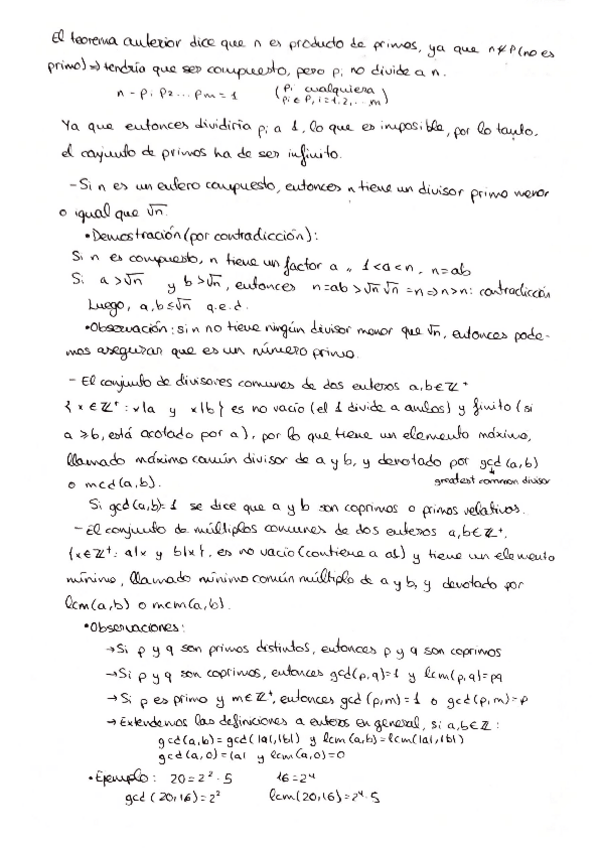 El teorema anterior dice que n es producto de primos, ya que n∉P (no es
primo) ⇒ tendría que ser compuesto, pero pᵢ no divide a n.
n - p₁ p₂ ... pₘ = 1 (pᵢ cualquiera
pᵢ ∈ P, i=1,2,...m)
Ya que entonces dividiría pᵢ a 1, lo que es imposible, por lo tanto,
el conjunto de primos ha de ser infinito.
- Si n es un entero compuesto, entonces n tiene un divisor primo menor
o igual que √n.
• Demostración (por contradicción):
Si n es compuesto, n tiene un factor a ,, 1<a<n, n=ab
Si a>√n y b>√n, entonces n=ab>√n√n=n⇒n>n: contradicción
Luego, a,b≤√n q.e.d.
• Observación: si n no tiene ningún divisor menor que √n, entonces pode-
mos asegurar que es un número primo.
- El conjunto de divisores comunes de dos enteros a,b∈ℤ⁺
{x∈ℤ⁺: x|a y x|b} es no vacío (el 1 divide a ambos) y finito (si
a≥b, está acotado por a), por lo que tiene un elemento máximo,
llamado máximo común divisor de a y b, y denotado por gcd(a,b)
o mcd(a,b). greatest common divisor
Si gcd(a,b)=1 se dice que a y b son coprimos o primos relativos.
- El conjunto de múltiplos comunes de dos enteros a,b∈ℤ⁺,
{x∈ℤ⁺: a|x y b|x}, es no vacío (contiene a ab) y tiene un elemento
mínimo, llamado mínimo común múltiplo de a y b, y denotado por
lcm(a,b) o mcm(a,b).
• Observaciones:
→ Si p y q son primos distintos, entonces p y q son coprimos
→ Si p y q son coprimos, entonces gcd(p,q)=1 y lcm(p,q)=pq
→ Si p es primo y m∈ℤ⁺, entonces gcd(p,m)=1 o gcd(p,m)=p
→ Extendemos las definiciones a enteros en general, si a,b∈ℤ:
gcd(a,b)=gcd(|a|,|b|) y lcm(a,b)=lcm(|a|,|b|)
gcd(a,0)=|a| y lcm(a,0)=0
• Ejemplo: 20=2²·5 16=2⁴
gcd(20,16)=2² lcm(20,16)=2⁴·5